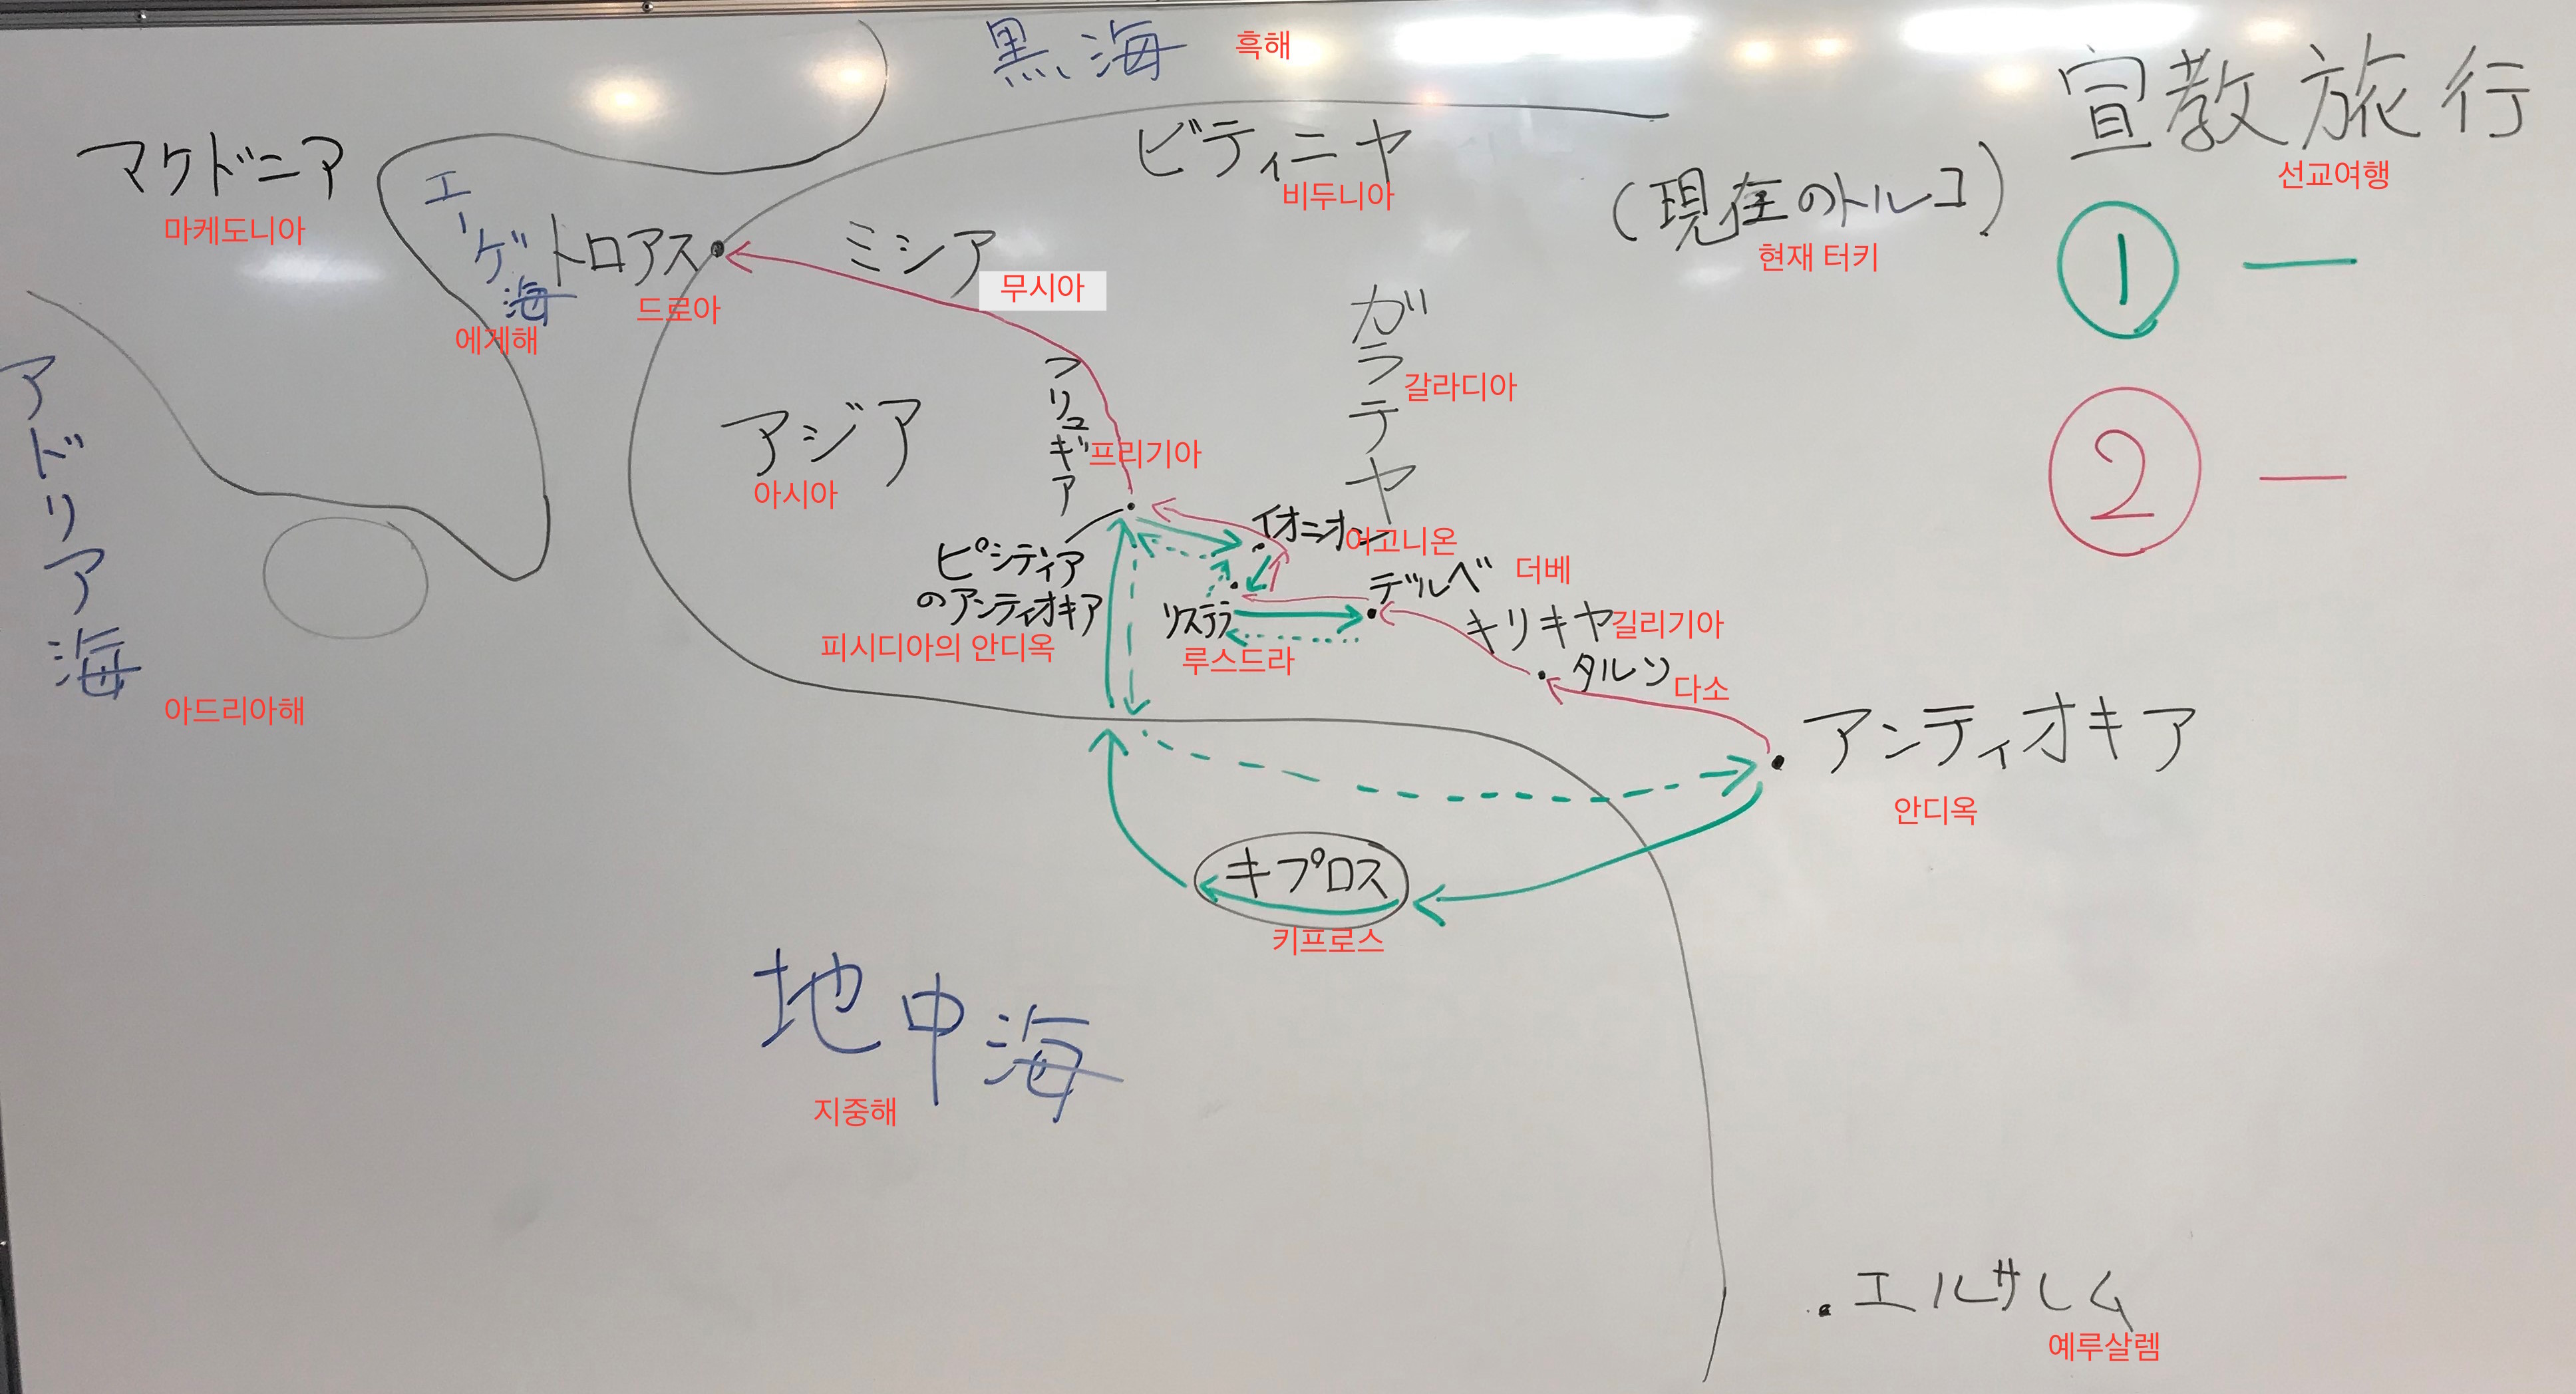 黒海
흑해
宣教旅行
선교여행
マケドニア
마케도니아
ビティニヤ
비두니아
(現在のトルコ)
현재 터키
エーゲ海
에게해
トロアス
드로아
ミシア
무시아
①
②
ガラテヤ
갈라디아
アドリア海
아드리아해
アジア
아시아
フリュギア
프리기아
イオニオン
이고니온
ピシディア
のアンティオキア
피시디아의 안디옥
リステラ
루스드라
デルベ
더베
キリキヤ
길리기아
タルソ
다소
アンティオキア
안디옥
キプロス
키프로스
地中海
지중해
エルサレム
예루살렘